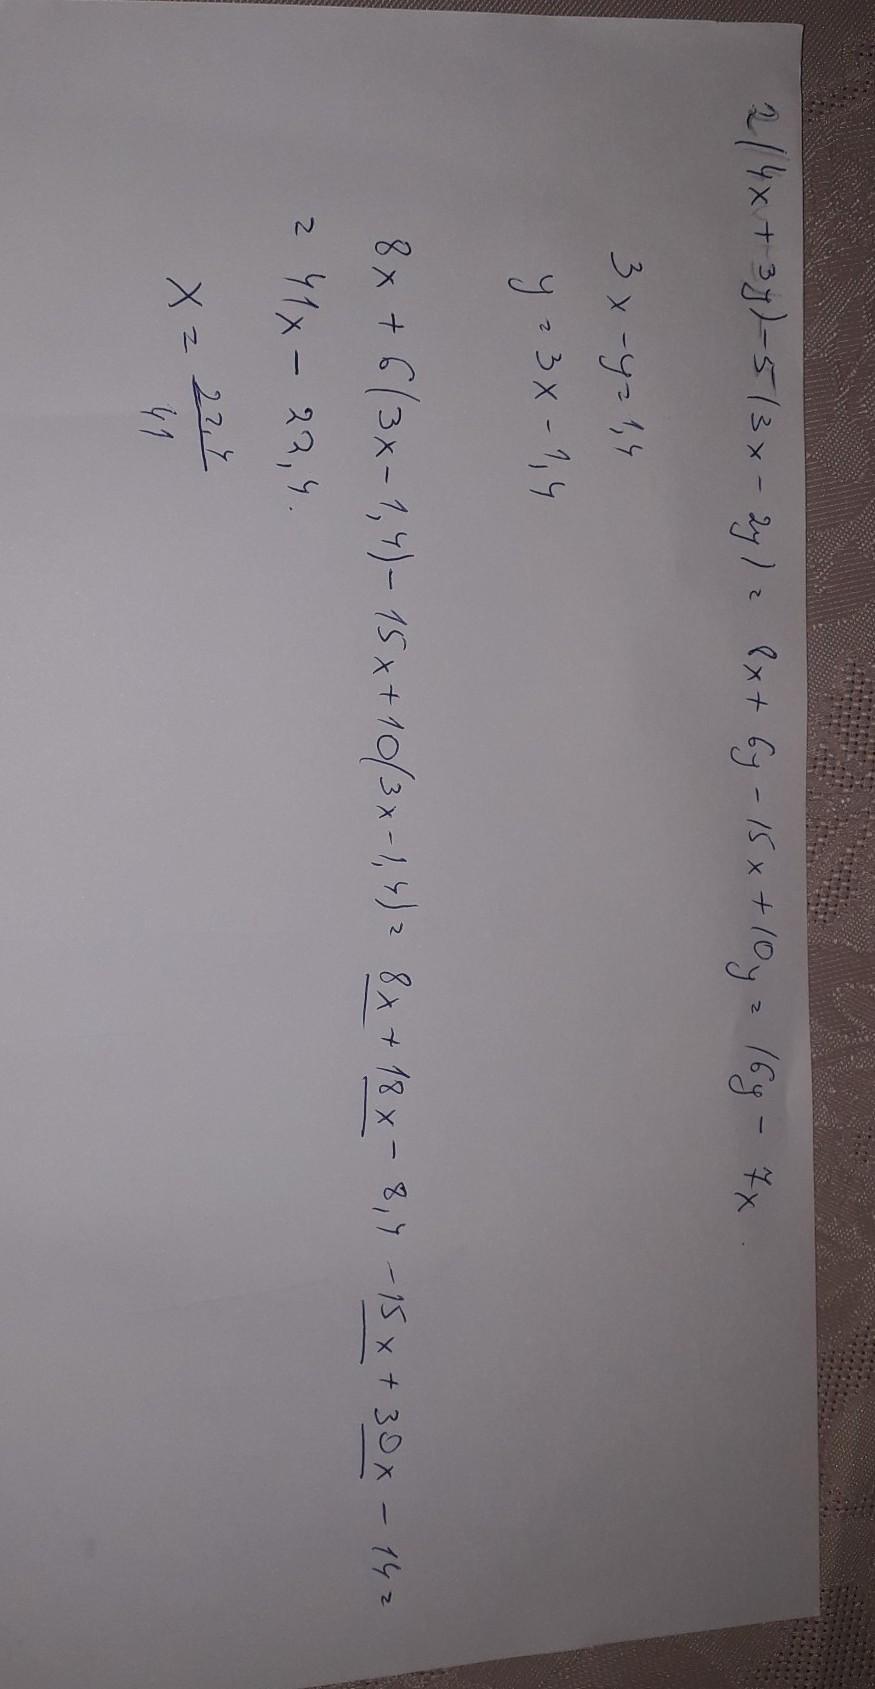 2(4x+3y)-5(3x-2y)= 8x+6y-15x+10y=16y-7x.
3x-y=1,4
y=3x-1,4
8x+6(3x-1,4)-15x+10(3x-1,4)= 8x+18x-8,4-15x+30x-14=
=41x-22,4.
x=22,4/41